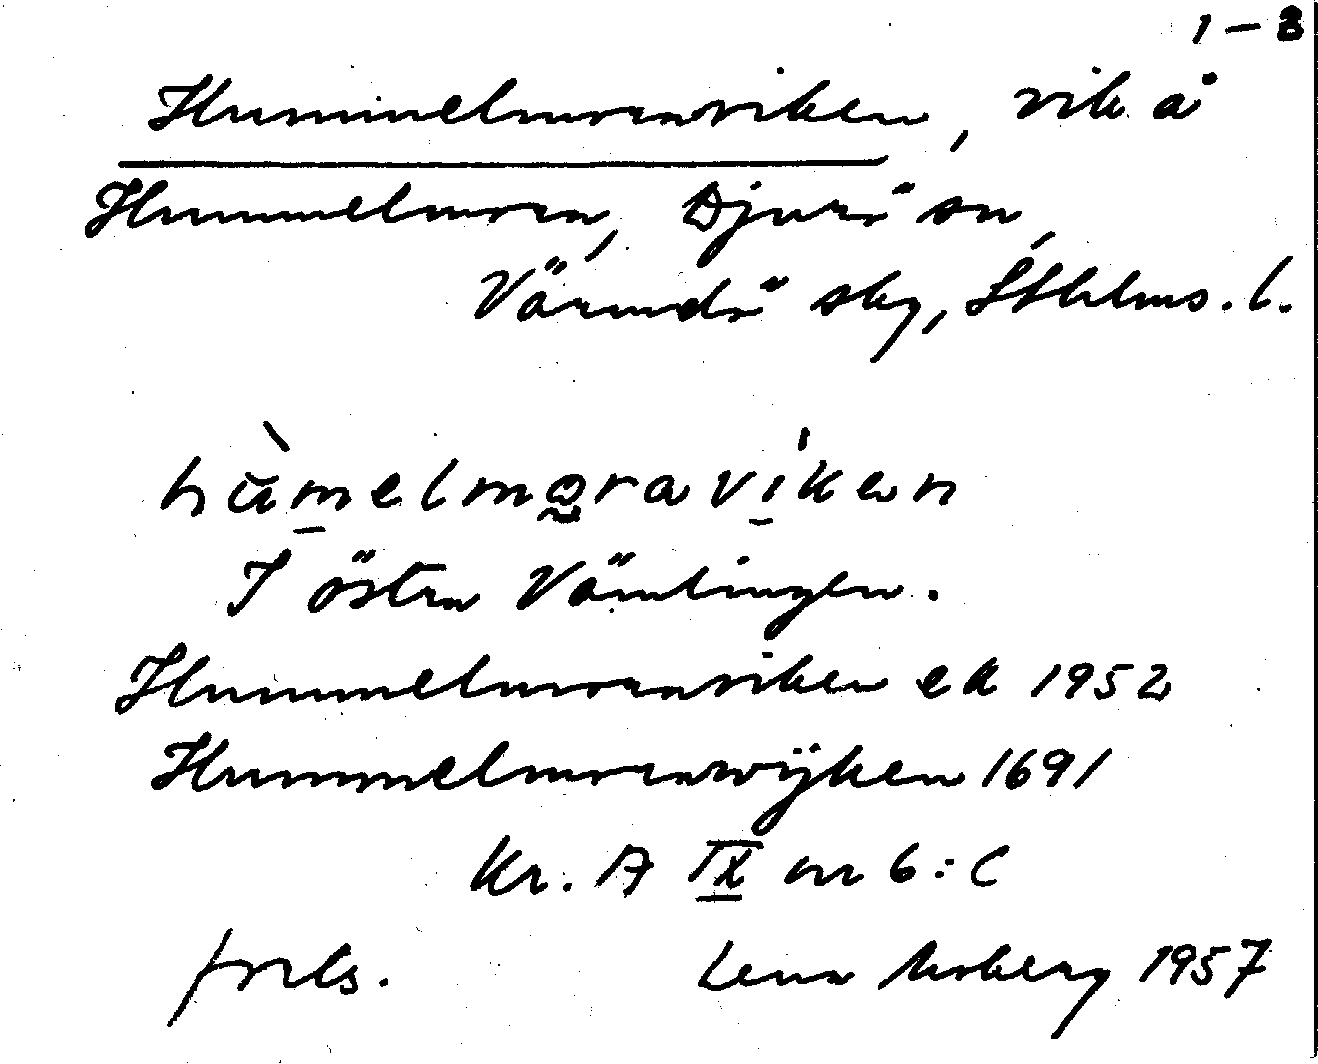 1 – 8
Hummelmoraviken, vik å
Hummelmora, Djurö sn,
Värmdö skg, Sthlms. l.
hùmelmoraviken
I östra Vämlingen.
Hummelmoraviken ek 1952
Hummelmorawijken 1691
Kr. A IX nr 6:C
frels. Lena Moberg 1957